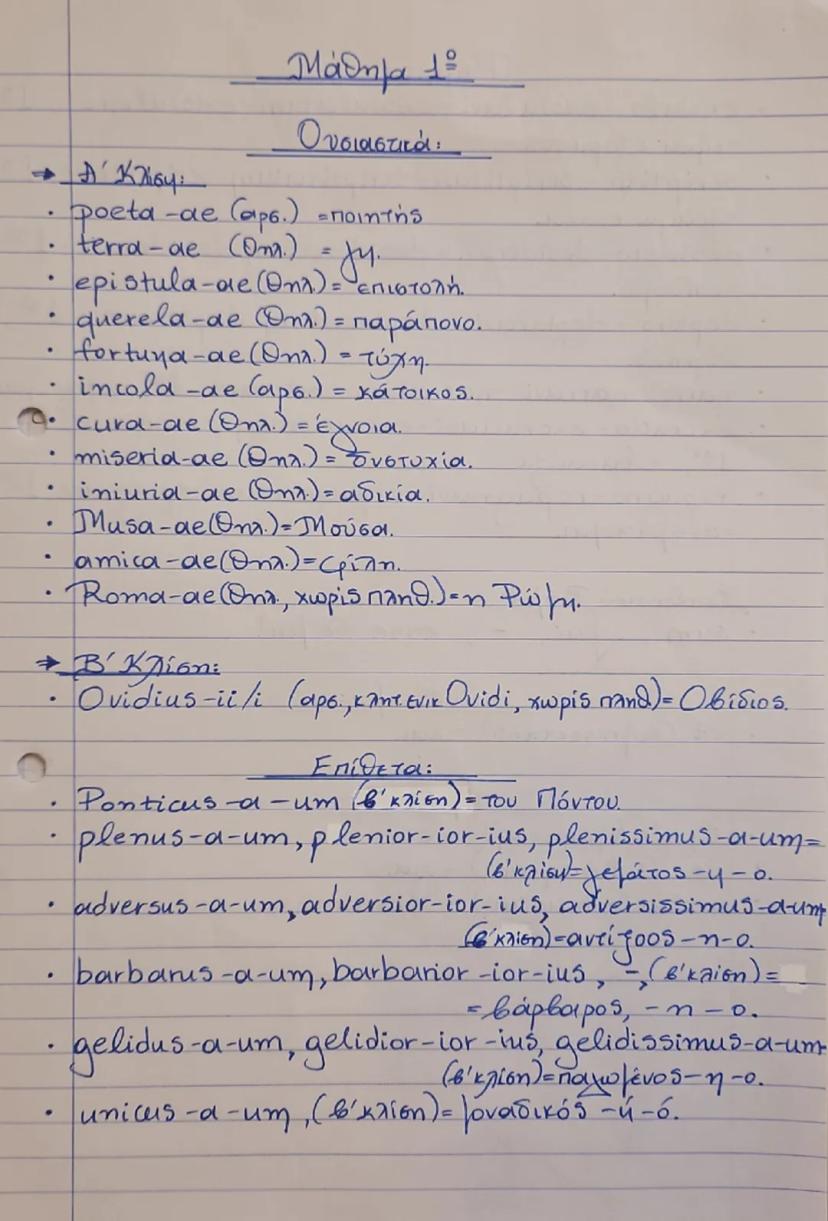 Μάθημα 1º
Ουσιαστικά:
→ Α' Κλίση:
· poeta -ae (αρσ.) =ποιητής
· terra-ae (Θηλ.) = γη.
· epistula-ae(Θηλ.)= επιστολή.
· querela-ae (Θηλ.)=παράπονο.
· fortuna-ae(Θηλ.) = τύχη.
· incola -ae (αρσ.) = κάτοικος.
· cura-ae (Θηλ.) = έγνοια.
· miseria-ae (Θηλ.)= δυστυχία.
· iniuria-ae (Θηλ.)=αδικία.
· Musa-ae(Θηλ.)=Μούσα.
· amica-ae(Θηλ.)=φίλη.
· Roma-ae(Θηλ., χωρίς πληθ.)=η Ρώμη.
→ Β' Κλίση:
· Ovidius-ii/i (αρσ., κλητ. ενικ Ovidi, χωρίς πληθ)= Οβίδιος.
Επίθετα:
· Ponticus -a -um (β'κλίση)=του Πόντου.
· plenus-a-um, plenior-ior-ius, plenissimus-a-um=
(β'κλίση)=γεμάτος-η-ο.
· adversus-a-um, adversior-ior-ius, adversissimus-a-um
(β'κλίση)=αντίξοος-η-ο.
· barbarus-a-um, barbarior -ior-ius, -, (β'κλίση)=
=βάρβαρος, -η -ο.
· gelidus-a-um, gelidior-ior -ius, gelidissimus-a-um
(β'κλίση)=παγωμένος-η-ο.
· unicus -a -um, (β'κλίση)=μοναδικός -ή-ό.